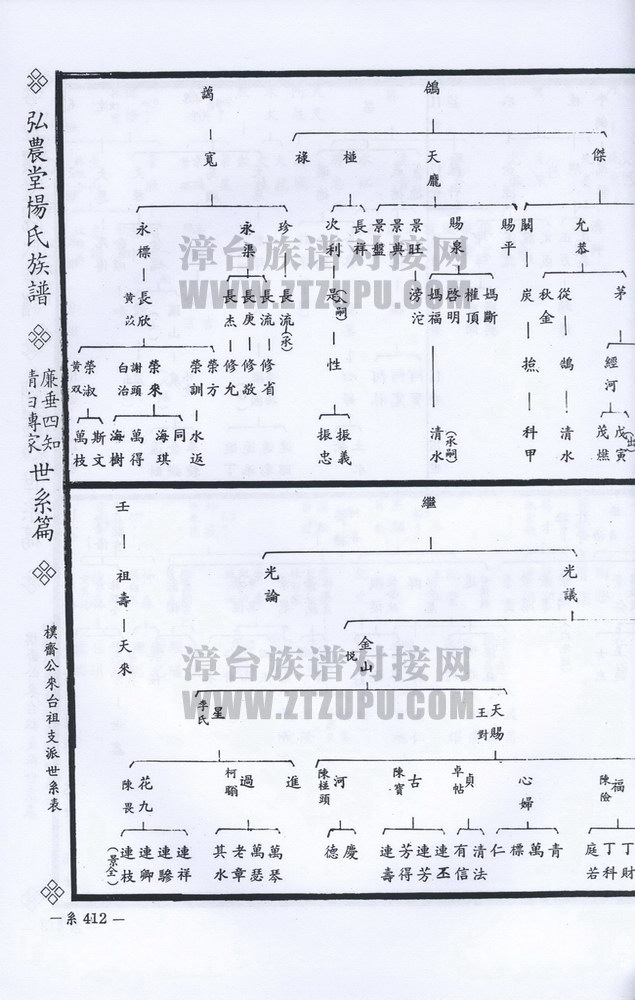 弘農堂楊氏族譜
廉垂四知
清白傳家
世系篇
樸齋公來台祖支派世系表
— 系 412 —
鴿
傑
天龐
椪
祿
允恭
關
賜平
賜泉
景旺
景典
景盤
長祥
次利
茅
從
秋金
炭
媽斷
權頂
啓明
媽福
滂沱
是
(入嗣)
經河
鵠
抬
性
戊寅
(出
茂樵
清水
科甲
清水
(承嗣)
振義
振忠
蔼
寬
珍
永渠
永標
長流
(承)
長流
長庚
長杰
長欣
黃苡
修省
修敬
修允
榮方
榮訓
榮來
謝頭
白治
榮淑
黃双
水返
同
海琪
萬得
海樹
斯文
萬枝
繼
光議
光論
金山
悅
天賜
王對
星
李氏
福
陳險
心婦
貞
卓帖
古
陳寶
河
陳椪頭
進
過
柯聯
花九
陳畏
丁財
丁科
庭若
青
萬
標
仁
清法
有信
連丕
連芳
芳得
連壽
慶
德
萬琴
萬瑟
老章
其水
連祥
連驂
連卿
連枝
(景全)
壬
祖壽
天來
漳台族谱对接网
WWW.ZTZUPU.COM
漳台族谱对接网
WWW.ZTZUPU.COM